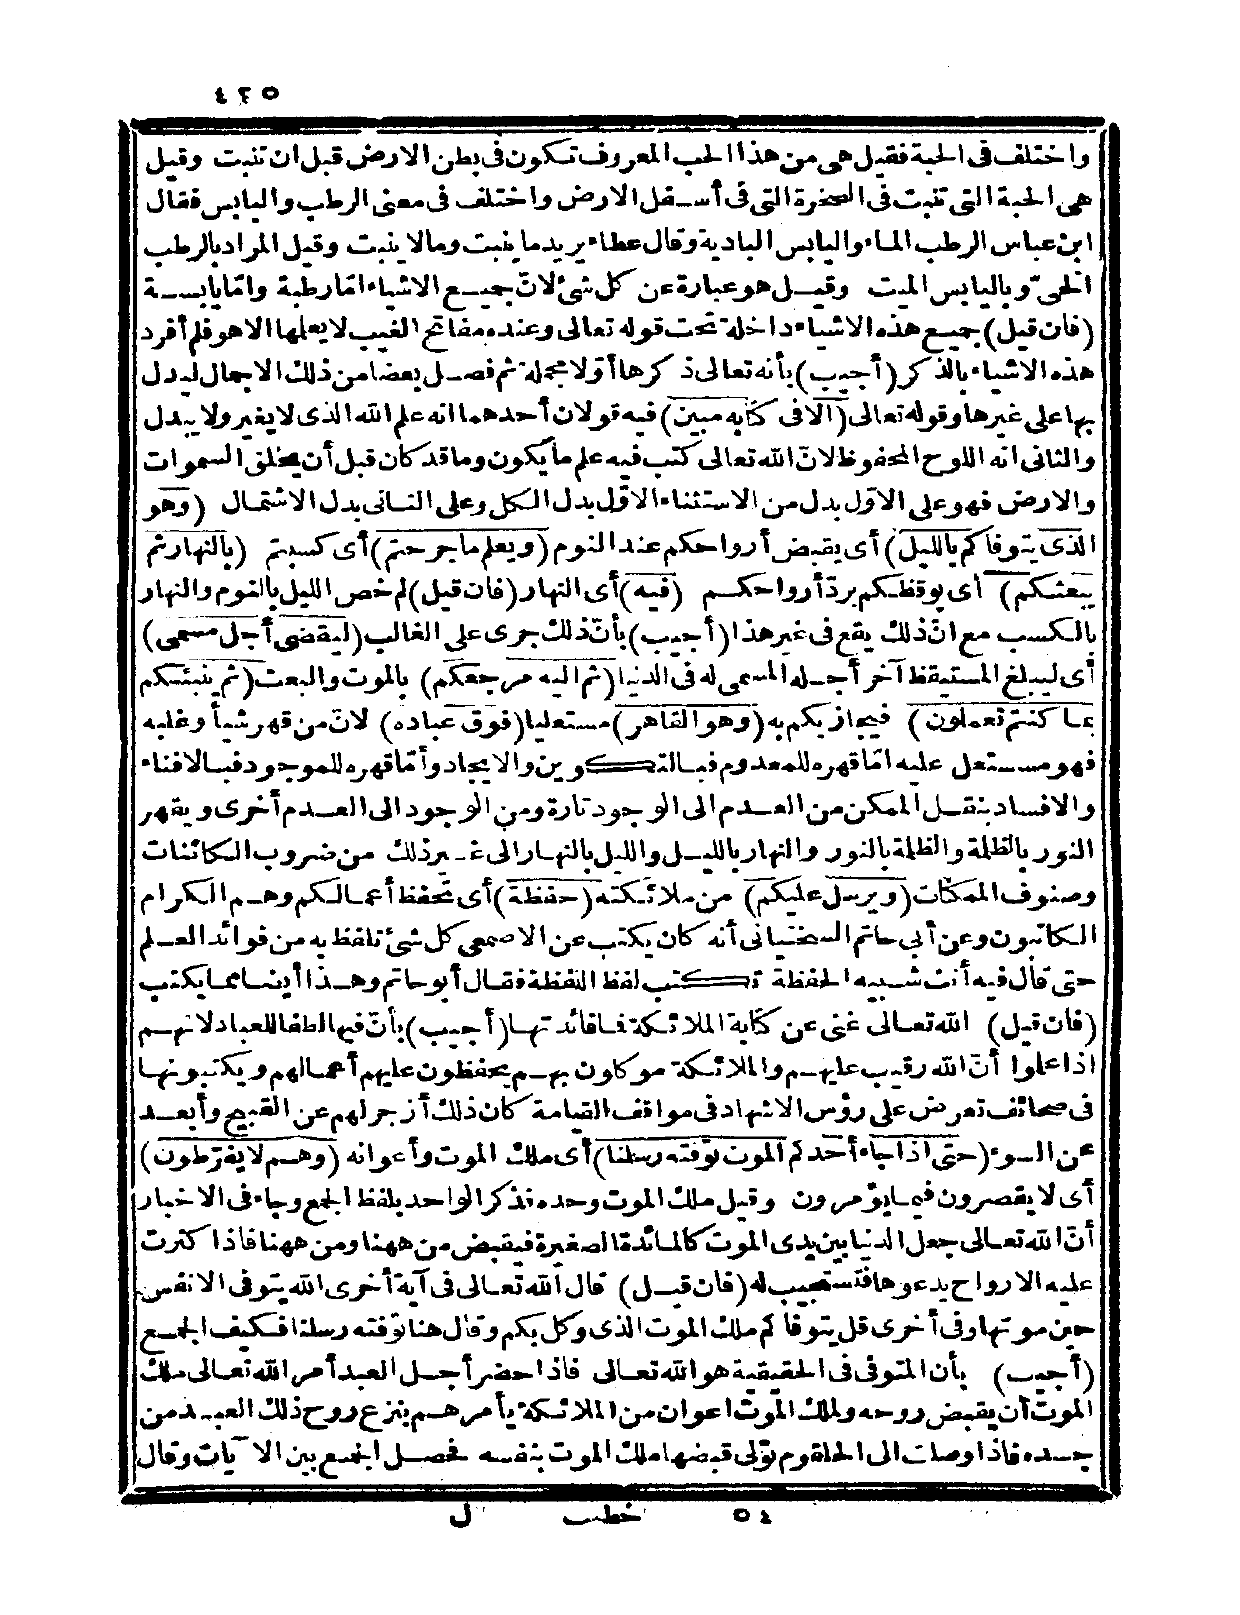 ٤٢٥
واختلف فى الحبة فقيل هى من هذا الحب المعروف تكون فى بطن الارض قبل ان تنبت وقيل
هى الحبة التى تنبت فى الصخرة التى فى أسفل الارض واختلف فى معنى الرطب واليابس فقال
ابن عباس الرطب الماء واليابس البادية وقال عطاء يريد ما ينبت ومالا ينبت وقيل المراد بالرطب
الحىّ وباليابس الميت وقيل هو عبارة عن كل شئ لانّ جميع الاشياء امّا رطبة وامّا يابسة
(فان قيل) جميع هذه الاشياء داخلة تحت قوله تعالى وعنده مفاتح الغيب لا يعلمها الا هو فلم أفرد
هذه الاشياء بالذكر (أجيب) بأنه تعالى ذكرها أوّلا مجملة ثم فصل بعضا من ذلك الاجمال ليدل
بها على غيرها وقوله تعالى (الا فى كتاب مبين) فيه قولان أحدهما انه علم الله الذى لا يغير ولا يبدل
والثانى انه اللوح المحفوظ لانّ الله تعالى كتب فيه علم ما يكون وما قد كان قبل أن يخلق السموات
والارض فهو على الاوّل بدل من الاستثناء الاوّل بدل الكل وعلى الثانى بدل الاشتمال (وهو
الذى يتوفاكم بالليل) أى يقبض أرواحكم عند النوم (ويعلم ما جرحتم) أى كسبتم (بالنهار ثم
يبعثكم) أى يوقظكم بردّ أرواحكم (فيه) أى النهار (فان قيل) لم خص الليل بالنوم والنهار
بالكسب مع انّ ذلك يقع فى غير هذا (أجيب) بأنّ ذلك جرى على الغالب (ليقضى أجل مسمى)
أى ليبلغ المستيقظ آخر أجله المسمى له فى الدنيا (ثم اليه مرجعكم) بالموت والبعث (ثم ينبئكم
بما كنتم تعملون) فيجازيكم به (وهو القاهر) مستعليا (فوق عباده) لانّ من قهر شيأ وغلبه
فهو مستعل عليه امّا قهره للمعدوم فبالتكوين والايجاد وأمّا قهره للموجود فبالافناء
والافساد بنقل الممكن من العدم الى الوجود تارة ومن الوجود الى العدم أخرى ويقهر
النور بالظلمة والظلمة بالنور والنهار بالليل والليل بالنهار الى غير ذلك من ضروب الكائنات
وصنوف الممكنات (ويرسل عليكم) من ملائكته (حفظة) أى تحفظ أعمالكم وهم الكرام
الكاتبون وعن أبى حاتم السختيانى أنه كان يكتب عن الاصمعى كل شئ تلفظ به من فوائد العلم
حتى قال فيه أنت شبيه الحفظة تكتب لفظ اللفظة فقال أبو حاتم وهذا أيضا مما يكتب
(فان قيل) الله تعالى غنى عن كتابة الملائكة فما فائدتها (أجيب) بأنّ فيها لطفا للعباد لانهم
اذا علموا أنّ الله رقيب عليهم والملائكة موكلون بهم يحفظون عليهم أعمالهم ويكتبونها
فى صحائف تعرض على رؤس الاشهاد فى مواقف القيامة كان ذلك أزجر لهم عن القبيح وأبعد
عن السوء (حتى اذا جاء أحدكم الموت توفته رسلنا) أى ملك الموت وأعوانه (وهم لا يفرّطون)
أى لا يقصرون فيما يؤمرون وقيل ملك الموت وحده فذكر الواحد بلفظ الجمع وجاء فى الاخبار
أنّ الله تعالى جعل الدنيا بين يدى الموت كالمائدة الصغيرة فيقبض من ههنا ومن ههنا فاذا كثرت
عليه الارواح يدعوها فتستجيب له (فان قيل) قال الله تعالى فى آية أخرى الله يتوفى الانفس
حين موتها وفى أخرى قل يتوفاكم ملك الموت الذى وكل بكم وقال هنا توفته رسلنا فكيف الجمع
(أجيب) بأن المتوفى فى الحقيقة هو الله تعالى فاذا حضر أجل العبد أمر الله تعالى ملك
الموت أن يقبض روحه ولملك الموت اعوان من الملائكة يأمرهم بنزع روح ذلك العبد من
جسده فاذا وصلت الى الحلقوم تولى قبضها ملك الموت بنفسه فحصل الجمع بين الآيات وقال
٥٤ خطيب ل